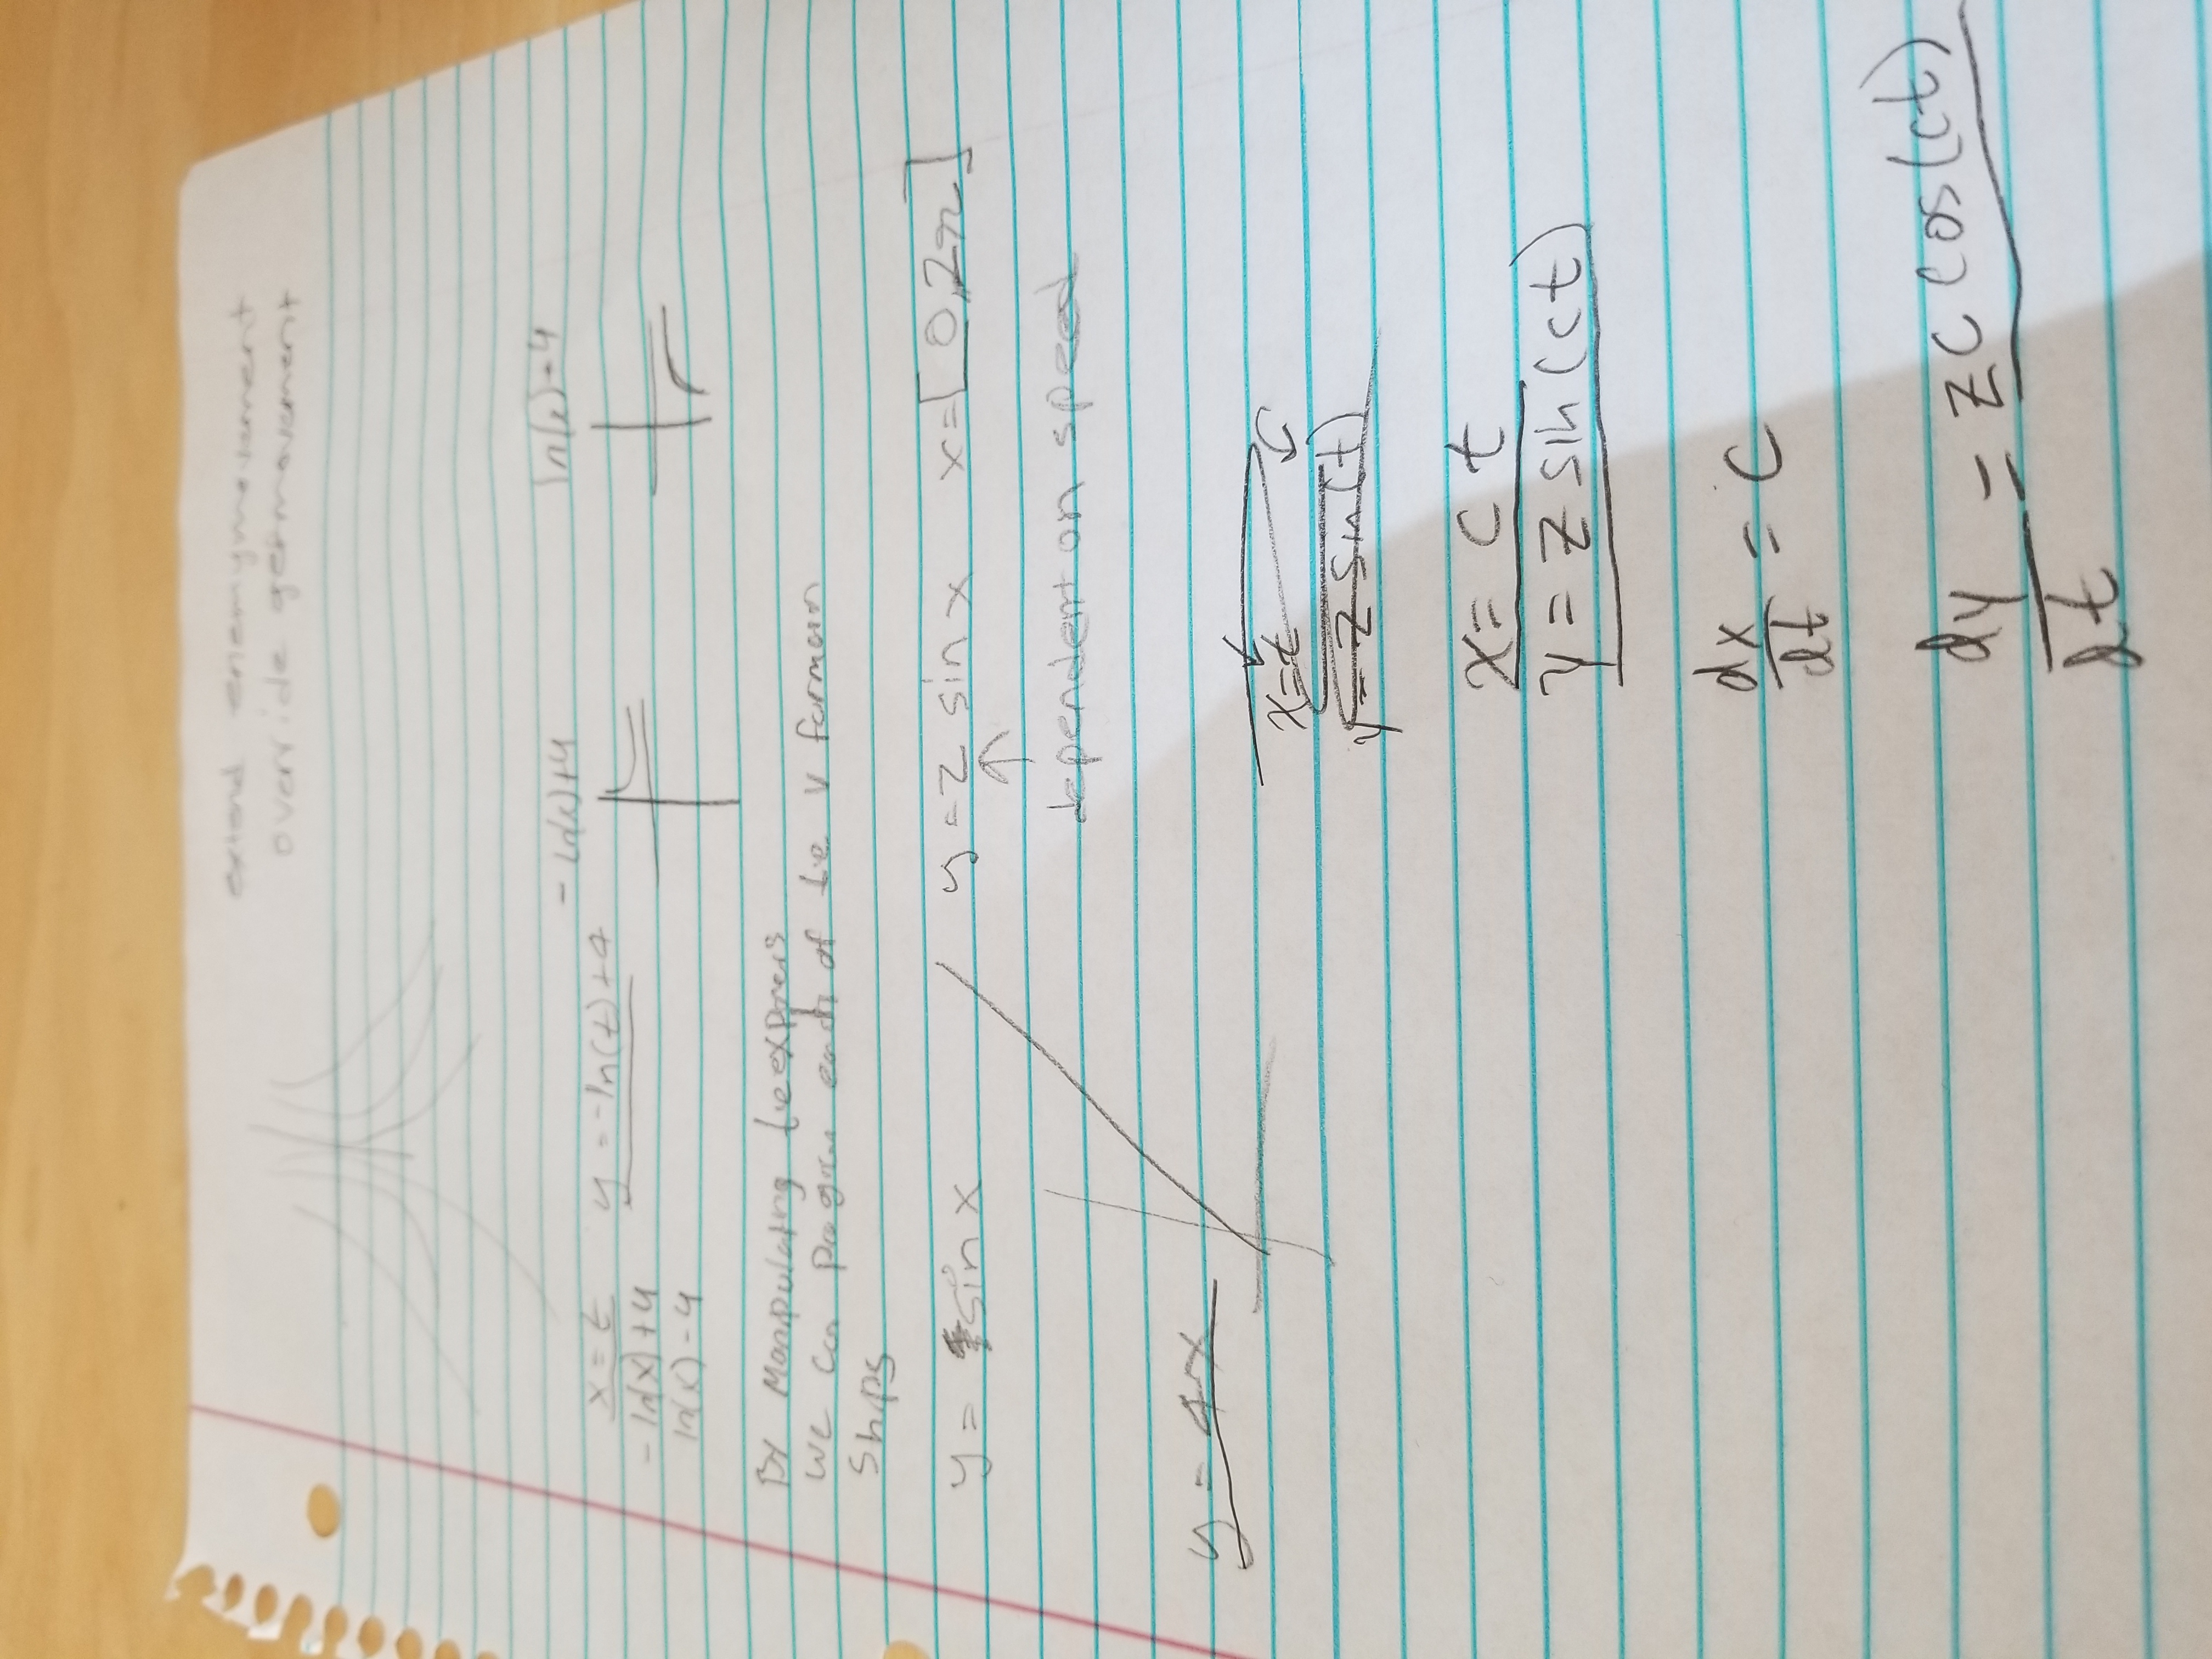 extend enemymovement
override getmovement
-ln(x)+4
ln(x)-4
x=t
y=-ln(t)+4
-ln(x)+4
ln(x)-4
By Manipulating
we can program each of v
ships
y= sin x
y=z sin x x=[0,2π]
dependent on speed
y=4x
x=t
y=z sin(t)
x= ct
y=z sin(ct)
dx
dt
= c
dy
dt
= zc cos(ct)